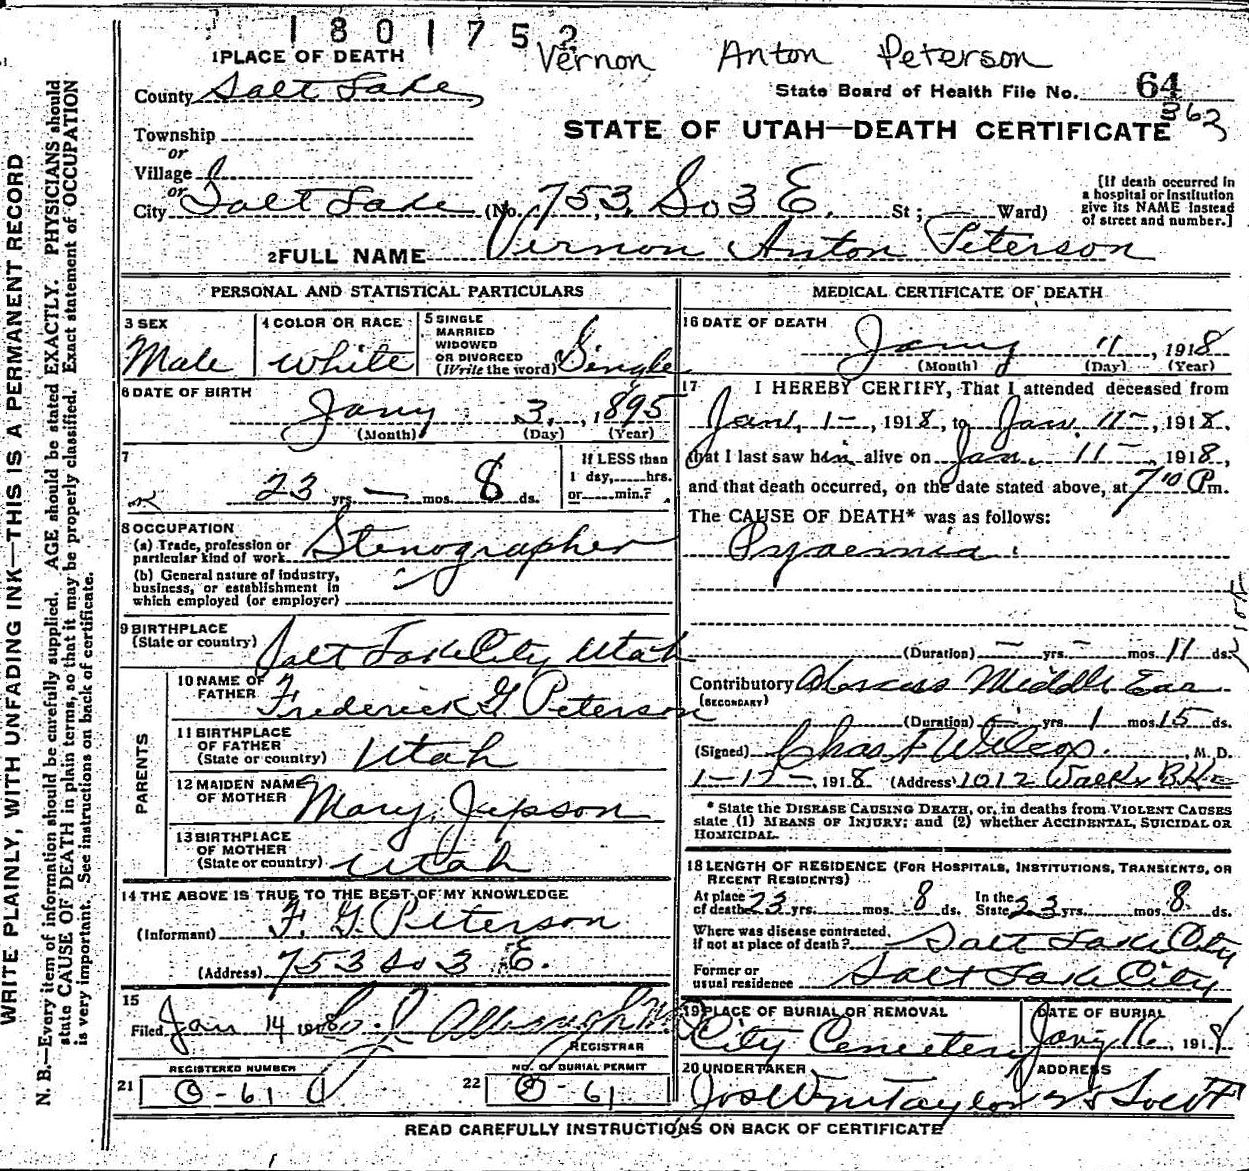 1801752
Vernon Anton Peterson
1 PLACE OF DEATH
County Salt Lake
State Board of Health File No. 64
363
Township
or
STATE OF UTAH—DEATH CERTIFICATE
Village
or
City Salt Lake (No. 753 So 3 E. St; Ward)
[If death occurred in
a hospital or institution
give its NAME instead
of street and number.]
2 FULL NAME Vernon Anton Peterson
PERSONAL AND STATISTICAL PARTICULARS
3 SEX
Male
4 COLOR OR RACE
White
5 SINGLE
MARRIED
WIDOWED
OR DIVORCED
(Write the word) Single
6 DATE OF BIRTH
Jany 3, 1895
(Month) (Day) (Year)
7
23 yrs. — mos. 8 ds.
If LESS than
1 day,......hrs.
or......min.?
8 OCCUPATION
(a) Trade, profession or
particular kind of work Stenographer
(b) General nature of industry,
business, or establishment in
which employed (or employer)
9 BIRTHPLACE
(State or country) Salt Lake City Utah
PARENTS
10 NAME OF
FATHER Frederick G Peterson
11 BIRTHPLACE
OF FATHER
(State or country) Utah
12 MAIDEN NAME
OF MOTHER Mary Jepson
13 BIRTHPLACE
OF MOTHER
(State or country) Utah
14 THE ABOVE IS TRUE TO THE BEST OF MY KNOWLEDGE
(Informant) F. G. Peterson
(Address) 753 So 3 E.
15
Filed Jan 14 1918
REGISTRAR
REGISTERED NUMBER
21 O-61
NO. OF BURIAL PERMIT
22 O-61
MEDICAL CERTIFICATE OF DEATH
16 DATE OF DEATH
Jany 11, 1918
(Month) (Day) (Year)
17 I HEREBY CERTIFY, That I attended deceased from
Jan. 1-, 1918, to Jan. 11-, 1918,
that I last saw him alive on Jan. 11-, 1918,
and that death occurred, on the date stated above, at 7 10 P m.
The CAUSE OF DEATH* was as follows:
Pyaemia
(Duration) — yrs. — mos. 11 ds.
Contributory Abscess Middle Ear
(SECONDARY)
(Duration) — yrs. 1 mos. 15 ds.
(Signed) Chas F Wilcox, M. D.
1-12-, 1918 (Address) 1012 Walker
* State the DISEASE CAUSING DEATH, or, in deaths from VIOLENT CAUSES
state (1) MEANS OF INJURY; and (2) whether ACCIDENTAL, SUICIDAL OR
HOMICIDAL.
18 LENGTH OF RESIDENCE (FOR HOSPITALS, INSTITUTIONS, TRANSIENTS, OR
RECENT RESIDENTS)
At place
of death 23 yrs. mos. 8 ds.
In the
State 23 yrs. mos. 8 ds.
Where was disease contracted,
if not at place of death? Salt Lake City
Former or
usual residence Salt Lake City
19 PLACE OF BURIAL OR REMOVAL
City Cemetery
DATE OF BURIAL
Jany 16, 1918
20 UNDERTAKER
Jos Wm Taylor
ADDRESS
READ CAREFULLY INSTRUCTIONS ON BACK OF CERTIFICATE
WRITE PLAINLY, WITH UNFADING INK—THIS IS A PERMANENT RECORD
N. B.—Every item of information should be carefully supplied. AGE should be stated EXACTLY. PHYSICIANS should
state CAUSE OF DEATH in plain terms, so that it may be properly classified. Exact statement of OCCUPATION
is very important. See instructions on back of certificate.